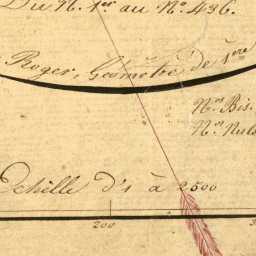 Du N.º 1.er au N.º 436.
Roger, Géomètre de 1ère
N.os Bis.
N.os Nuls
Echelle d'1 à 2500
200